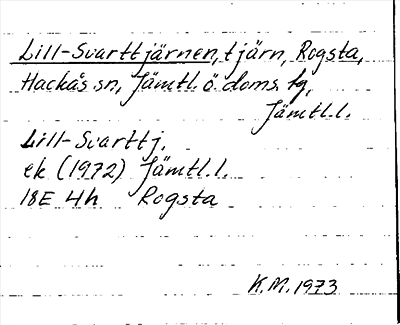 Lill-Svarttjärnen, tjärn, Rogsta,
Hackås sn, Jämtl. ö. doms. tg,
Jämtl.l.
Lill-Svarttj.
ek (1972) Jämtl.l.
18E 4h Rogsta
K.M. 1973